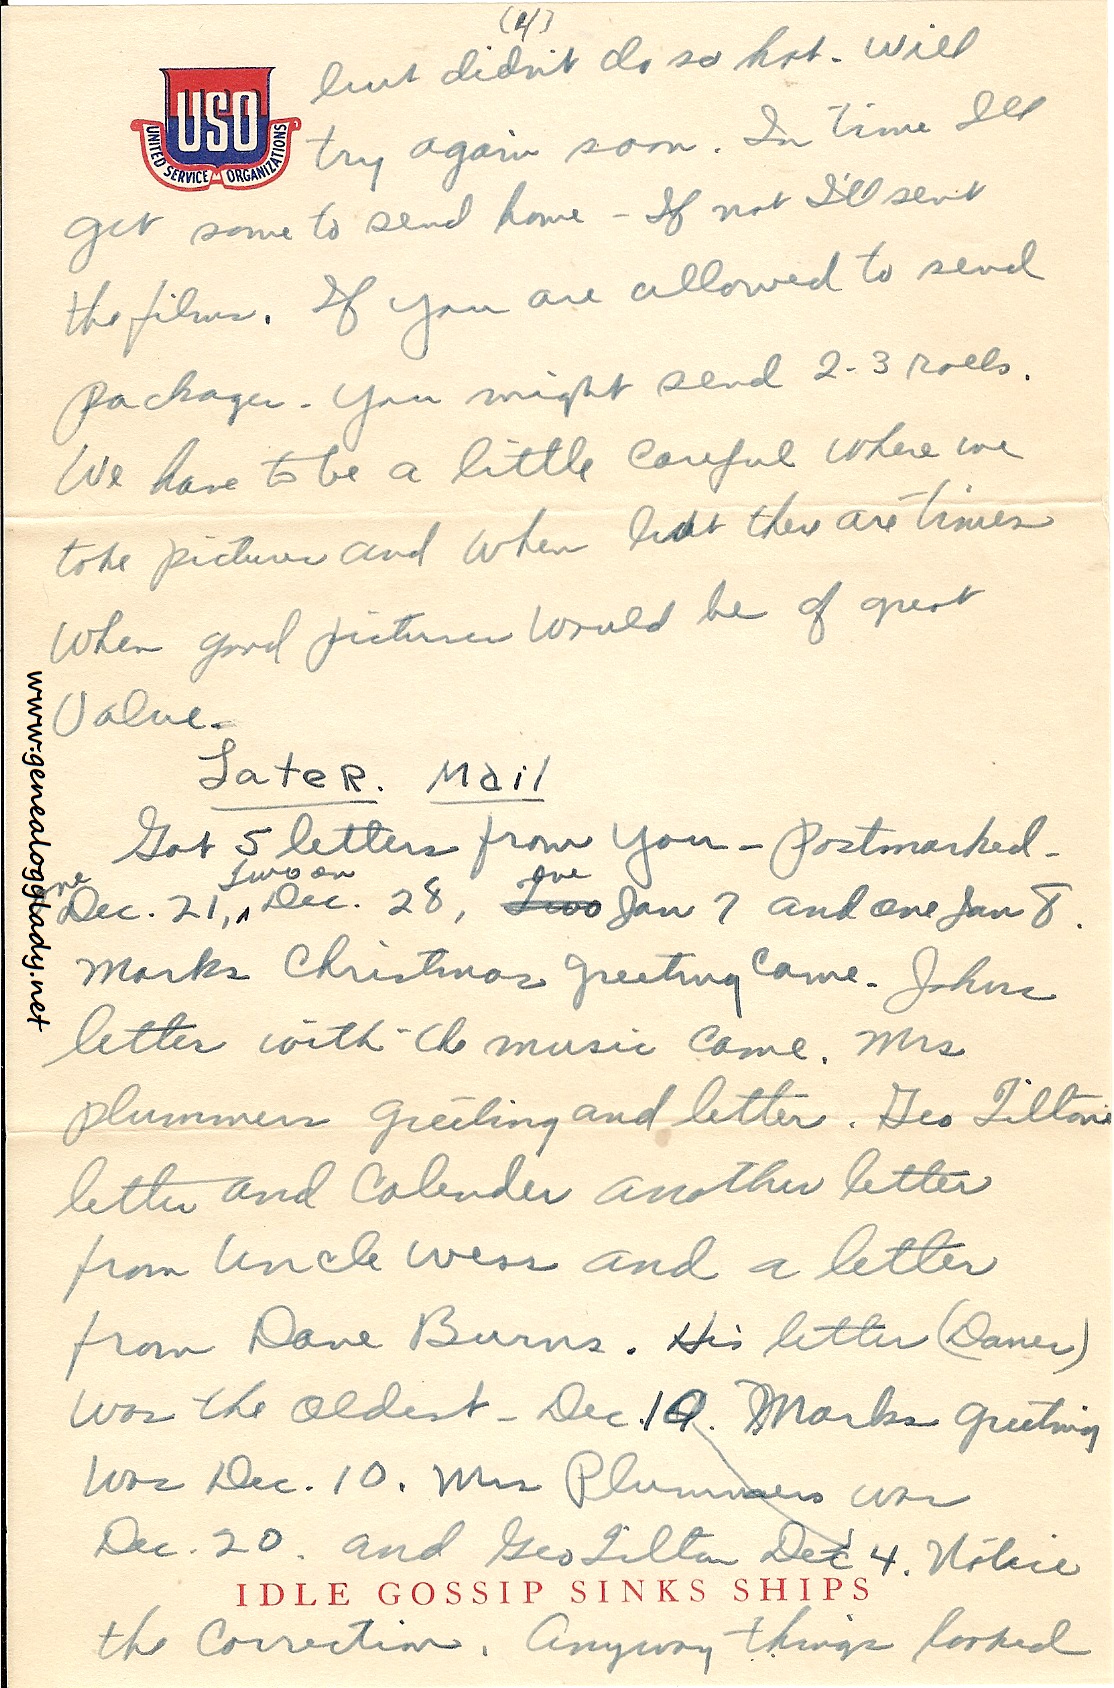 (4)
but didn't do so hot. Will
USO
UNITED SERVICE ORGANIZATIONS
try again soon. In time I'll
get some to send home - If not I'll sent
the films. If you are allowed to send
packages - you might send 2-3 rolls.
We have to be a little careful where we
take pictures and when but there are times
when good pictures would be of great
Value.
Later. Mail
Got 5 letters from you - Postmarked -
one two on one
Dec. 21, ^ Dec. 28, Two Jan 7 and one Jan 8.
Marks Christmas greeting came. Johns
letter with the music came. Mrs
Plummers greeting and letter. Geo Tiltons
letter and Calender another letter
from Uncle Wess and a letter
from Dave Burns. His letter (Daves)
was the oldest - Dec. 10. Marks greeting
was Dec. 10. Mrs Plummers was
Dec. 20. and Geo Tilton Dec 4. Notice
IDLE GOSSIP SINKS SHIPS
the Correction. Anyway things looked
www.genealogylady.net